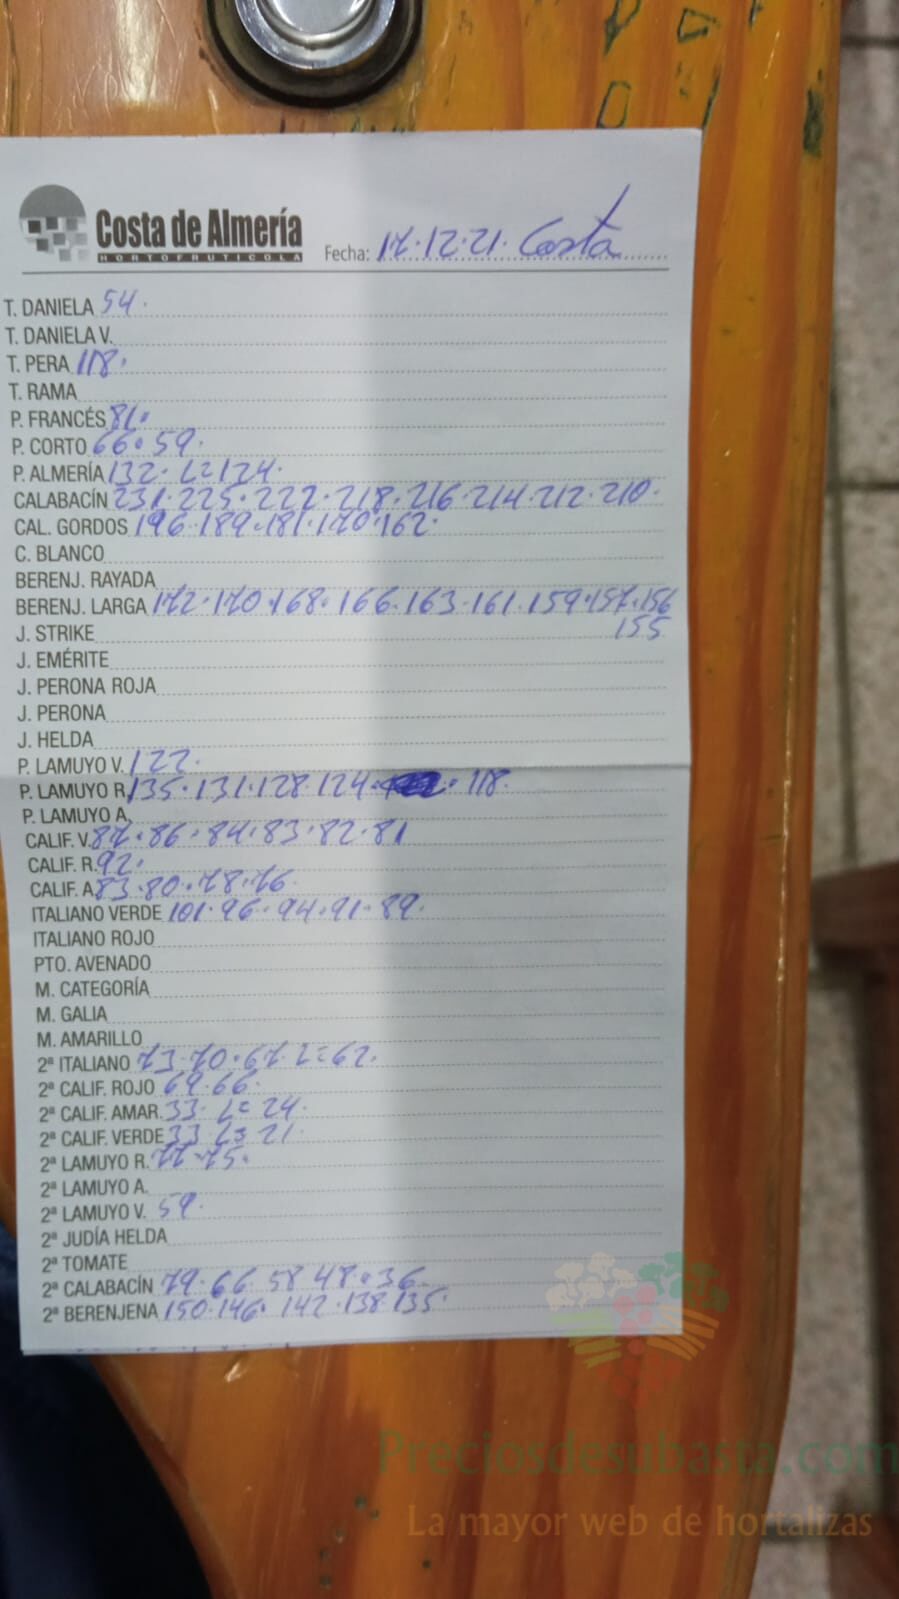 Costa de Almería
HORTOFRUTICOLA
Fecha: 17.12.21. Costa
T. DANIELA 54.
T. DANIELA V.
T. PERA 118.
T. RAMA
P. FRANCÉS 81.
P. CORTO 66. 59.
P. ALMERÍA 132. L=124.
CALABACÍN 231. 225. 222. 218. 216. 214. 212. 210.
CAL. GORDOS 196. 189. 181. 170. 162.
C. BLANCO
BERENJ. RAYADA
BERENJ. LARGA 172. 170. 168. 166. 163. 161. 159. 157. 156
J. STRIKE 155
J. EMÉRITE
J. PERONA ROJA
J. PERONA
J. HELDA
P. LAMUYO V. 122.
P. LAMUYO R. 135. 131. 128. 124. 118.
P. LAMUYO A.
CALIF. V. 87. 86. 84. 83. 82. 81
CALIF. R. 92.
CALIF. A. 83. 80. 78. 76.
ITALIANO VERDE 101. 96. 94. 91. 89.
ITALIANO ROJO
PTO. AVENADO
M. CATEGORÍA
M. GALIA
M. AMARILLO
2ª ITALIANO 73. 70. 67. L=62.
2ª CALIF. ROJO 69. 66.
2ª CALIF. AMAR. 33. L= 24.
2ª CALIF. VERDE 33 L= 21.
2ª LAMUYO R. 77. 75.
2ª LAMUYO A.
2ª LAMUYO V. 59.
2ª JUDÍA HELDA
2ª TOMATE
2ª CALABACÍN 79. 66. 58. 48. 36.
2ª BERENJENA 150. 146. 142. 138. 135.
Preciosdesubasta.com
La mayor web de hortalizas